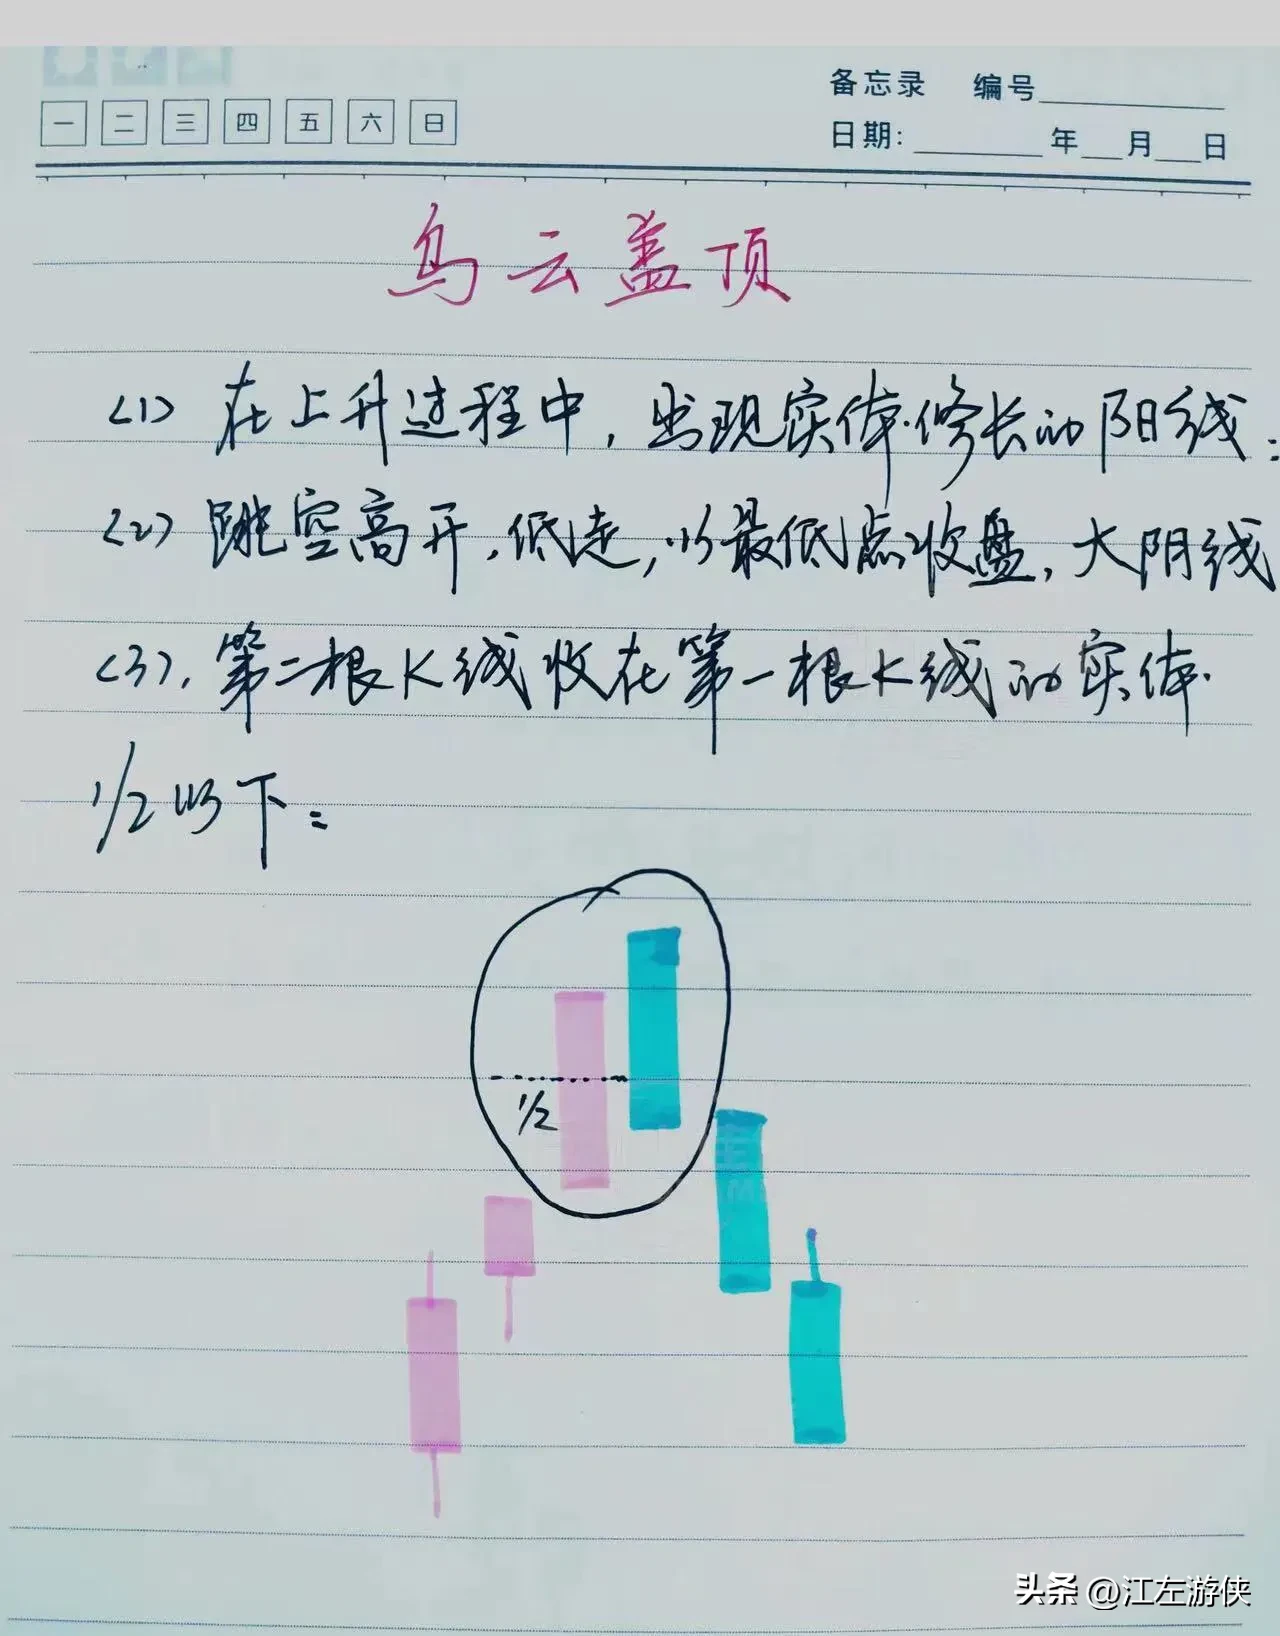 备忘录 编号
一 二 三 四 五 六 日
日期: 年 月 日
乌云盖顶
(1) 在上升过程中, 出现实体修长的阳线:
(2) 跳空高开, 低走, 以最低点收盘, 大阴线
(3), 第二根K线收在第一根K线的实体
1/2以下:
1/2
头条 @江左游侠